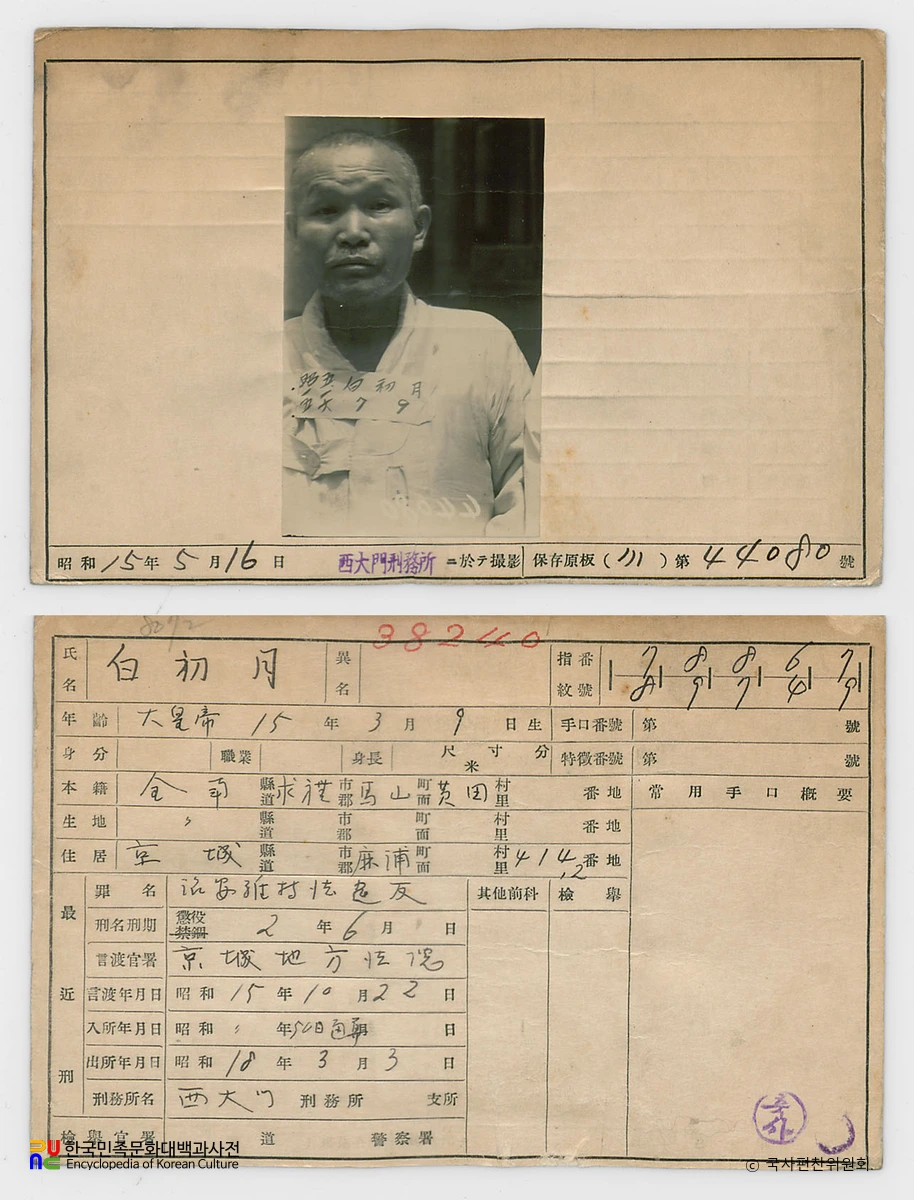 白初月
7 9
昭和15年5月16日 西大門刑務所ニ於テ撮影 保存原板( )第44080號
38240
氏名 白初月 異名 指紋番號 7 8 8 6 7
8 9 7 4 9
年齡 大皇帝 15年3月9日生 手口番號 第 號
身分 職業 身長 尺寸分 米 特徵番號 第 號
本籍 全南 縣道 求禮 市郡 馬山 町面 黃田 村里 番地 常用手口概要
生地 〃 縣道 市郡 町面 村里 番地
住居 京城 縣道 市郡 麻浦 町面 村里 414 番地
12
最近刑
罪名 治安維持法違反 其他前科 檢擧
刑名刑期 懲役 禁錮 2年6月 日
言渡官署 京城地方法院
言渡年月日 昭和15年10月22日
入所年月日 昭和 〃 年 50日通算 日
出所年月日 昭和18年3月3日
刑務所名 西大門 刑務所 支所
檢擧官署 道 警察署
한국민족문화대백과사전
Encyclopedia of Korean Culture
© 국사편찬위원회